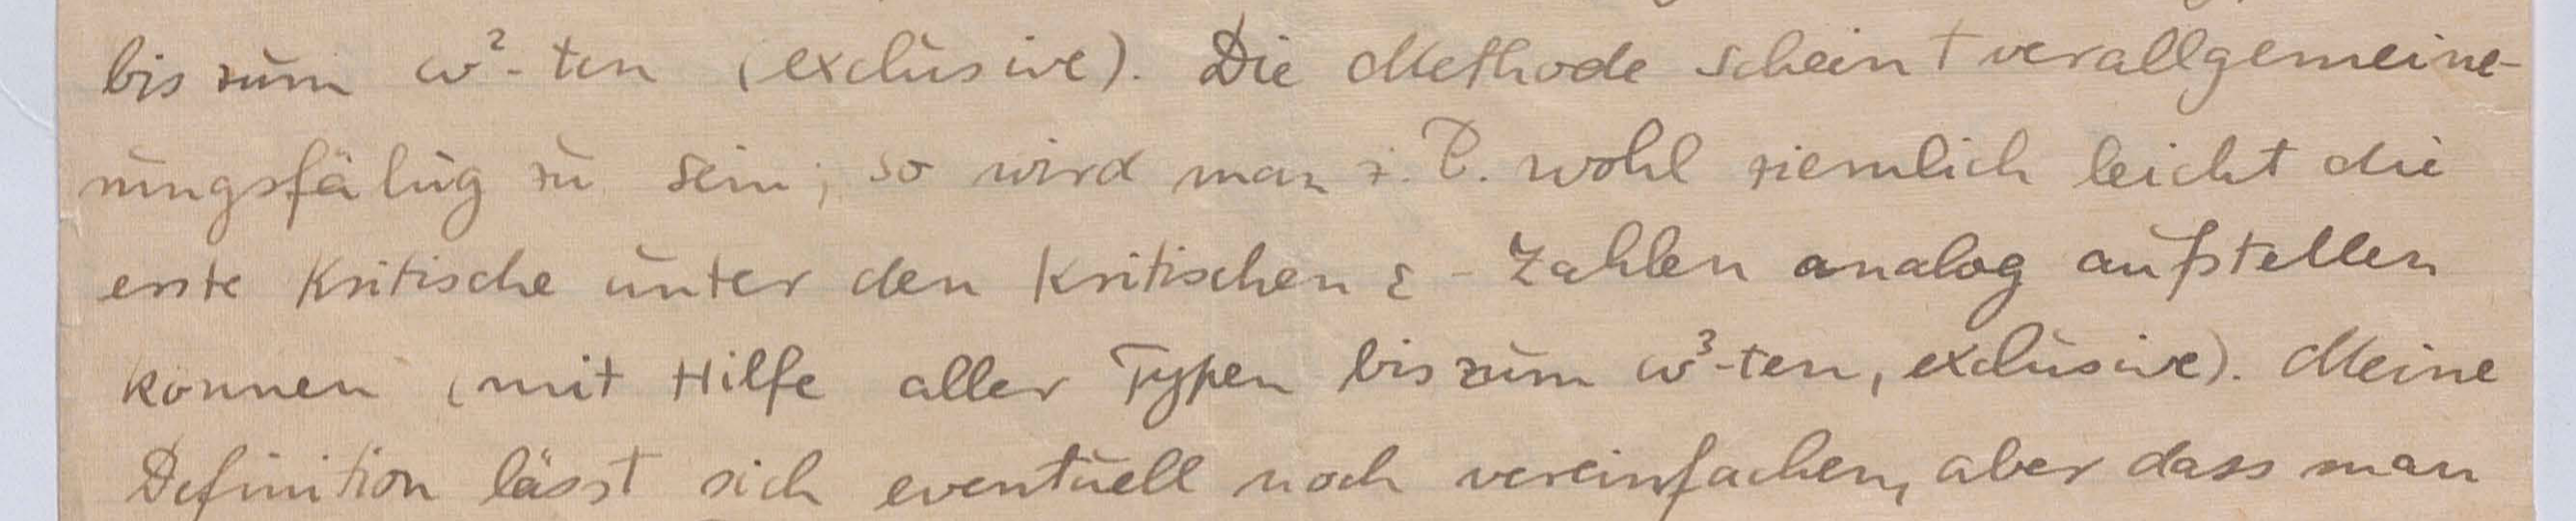 bis zum ω²-ten (exclusive). Die Methode scheint verallgemeine-
rungsfähig zu sein; so wird man z. B. wohl ziemlich leicht die
erste Kritische unter den Kritischen ε-Zahlen analog aufstellen
können (mit Hilfe aller Typen bis zum ω³-ten, exclusive). Meine
Definition lässt sich eventuell noch vereinfachen, aber dass man